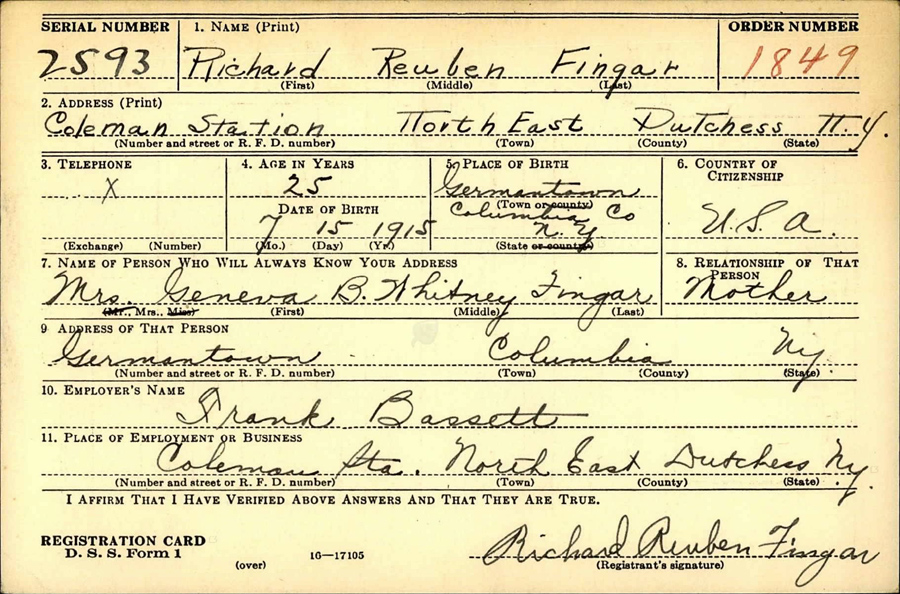 SERIAL NUMBER 1. NAME (Print) ORDER NUMBER
2593 Richard Reuben Fingar 1849
(First) (Middle) (Last)
2. ADDRESS (Print)
Coleman Station North East Dutchess N.Y.
(Number and street or R. F. D. number) (Town) (County) (State)
3. TELEPHONE 4. AGE IN YEARS 5. PLACE OF BIRTH 6. COUNTRY OF CITIZENSHIP
X 25 Germantown
(Town or county)
DATE OF BIRTH Columbia Co U.S.A.
7 15 1915 N.Y.
(Exchange) (Number) (Mo.) (Day) (Yr.) (State or country)
7. NAME OF PERSON WHO WILL ALWAYS KNOW YOUR ADDRESS 8. RELATIONSHIP OF THAT PERSON
Mrs. Geneva B. Whitney Fingar Mother
(Mr., Mrs., Miss) (First) (Middle) (Last)
9 ADDRESS OF THAT PERSON
Germantown Columbia Ny.
(Number and street or R. F. D. number) (Town) (County) (State)
10. EMPLOYER'S NAME
Frank Bassett
11. PLACE OF EMPLOYMENT OR BUSINESS
Coleman Sta. North East Dutchess Ny.
(Number and street or R. F. D. number) (Town) (County) (State)
I AFFIRM THAT I HAVE VERIFIED ABOVE ANSWERS AND THAT THEY ARE TRUE.
REGISTRATION CARD
D. S. S. Form 1 16—17105 Richard Reuben Fingar
(over) (Registrant's signature)